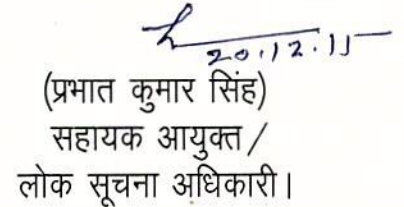 20.12.11
(प्रभात कुमार सिंह)
सहायक आयुक्त /
लोक सूचना अधिकारी।